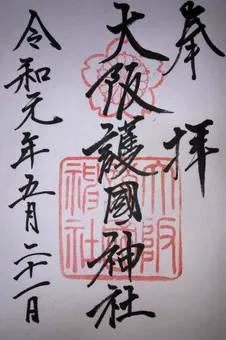 奉拝
大阪護國神社
令和元年五月二十一日
大阪護國神社